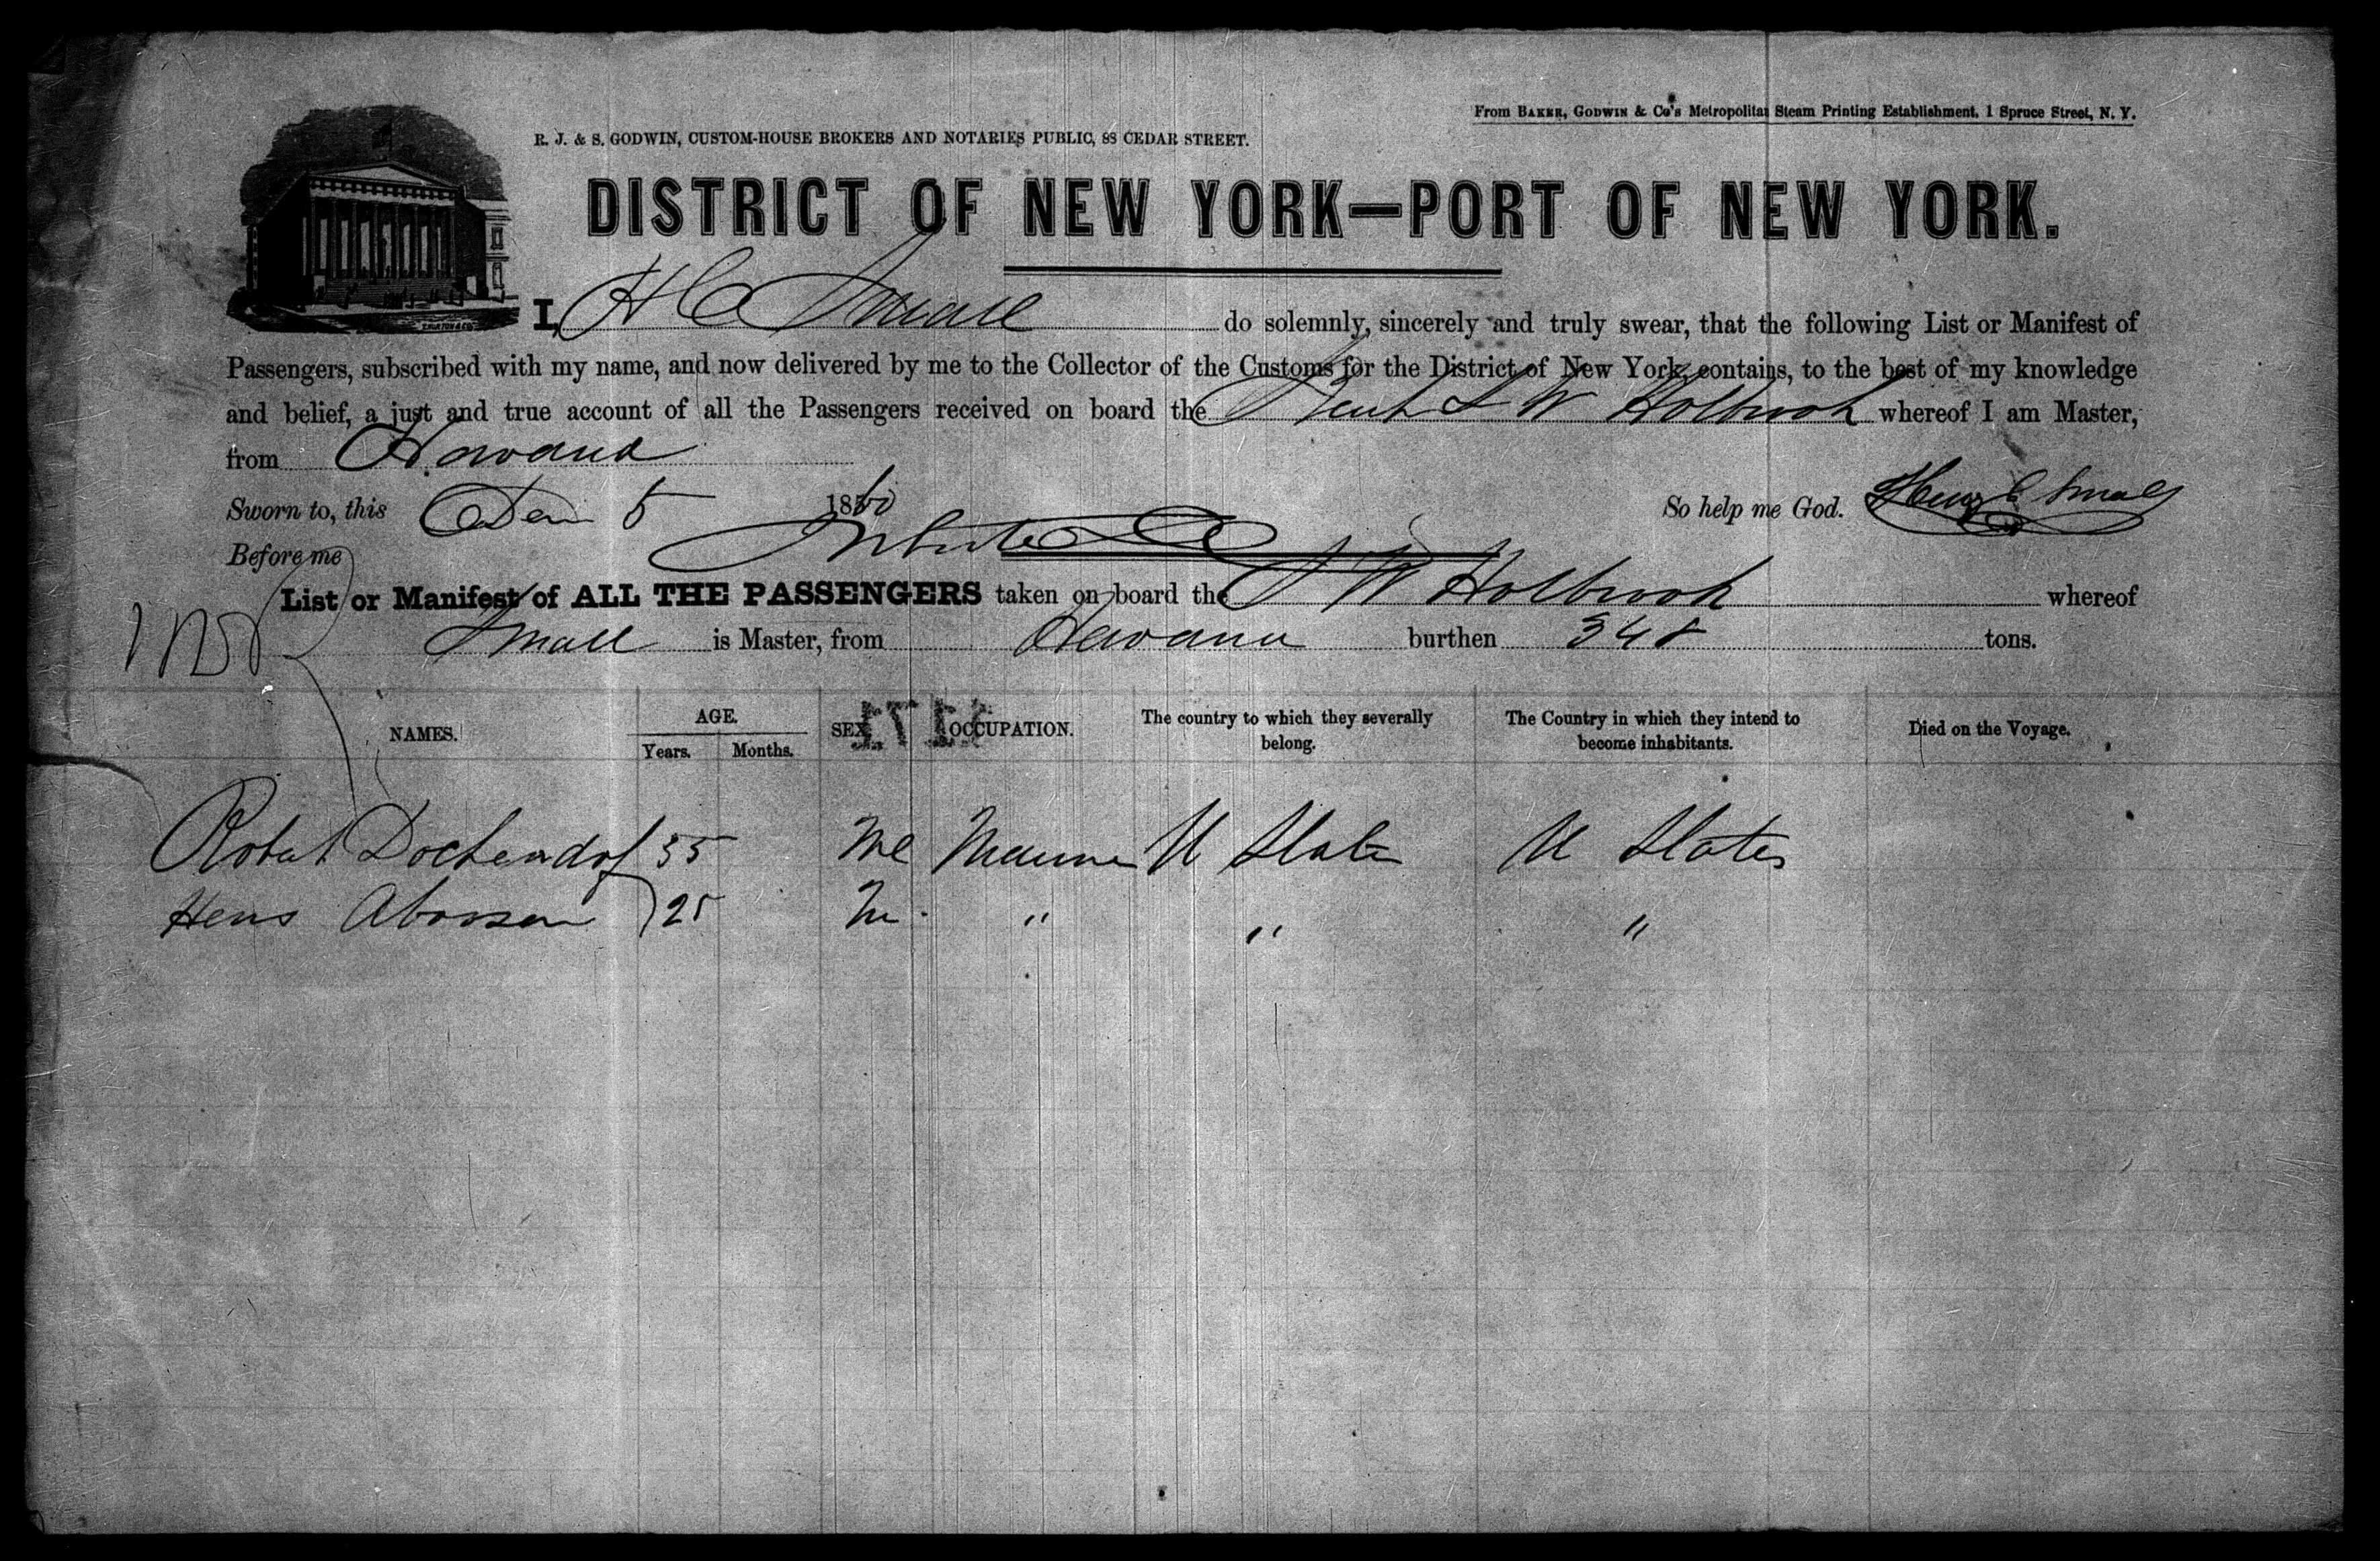 From BAKER, GODWIN & Co's Metropolitan Steam Printing Establishment, 1 Spruce Street, N. Y.
R. J. & S. GODWIN, CUSTOM-HOUSE BROKERS AND NOTARIES PUBLIC, 88 CEDAR STREET.
DISTRICT OF NEW YORK—PORT OF NEW YORK.
I, H C Small do solemnly, sincerely and truly swear, that the following List or Manifest of
Passengers, subscribed with my name, and now delivered by me to the Collector of the Customs for the District of New York, contains, to the best of my knowledge
and belief, a just and true account of all the Passengers received on board the J W Holbrook whereof I am Master,
from Havana
Sworn to, this 5 1860 So help me God. Henry C Small
Before me
List or Manifest of ALL THE PASSENGERS taken on board the J W Holbrook whereof
Small is Master, from Havana burthen 348 tons.
NAMES. AGE. Years. Months. SEX. OCCUPATION. The country to which they severally belong. The Country in which they intend to become inhabitants. Died on the Voyage.
Robert Dochendof 35 Ml Mariner U States U States
Hens 25 M " " "